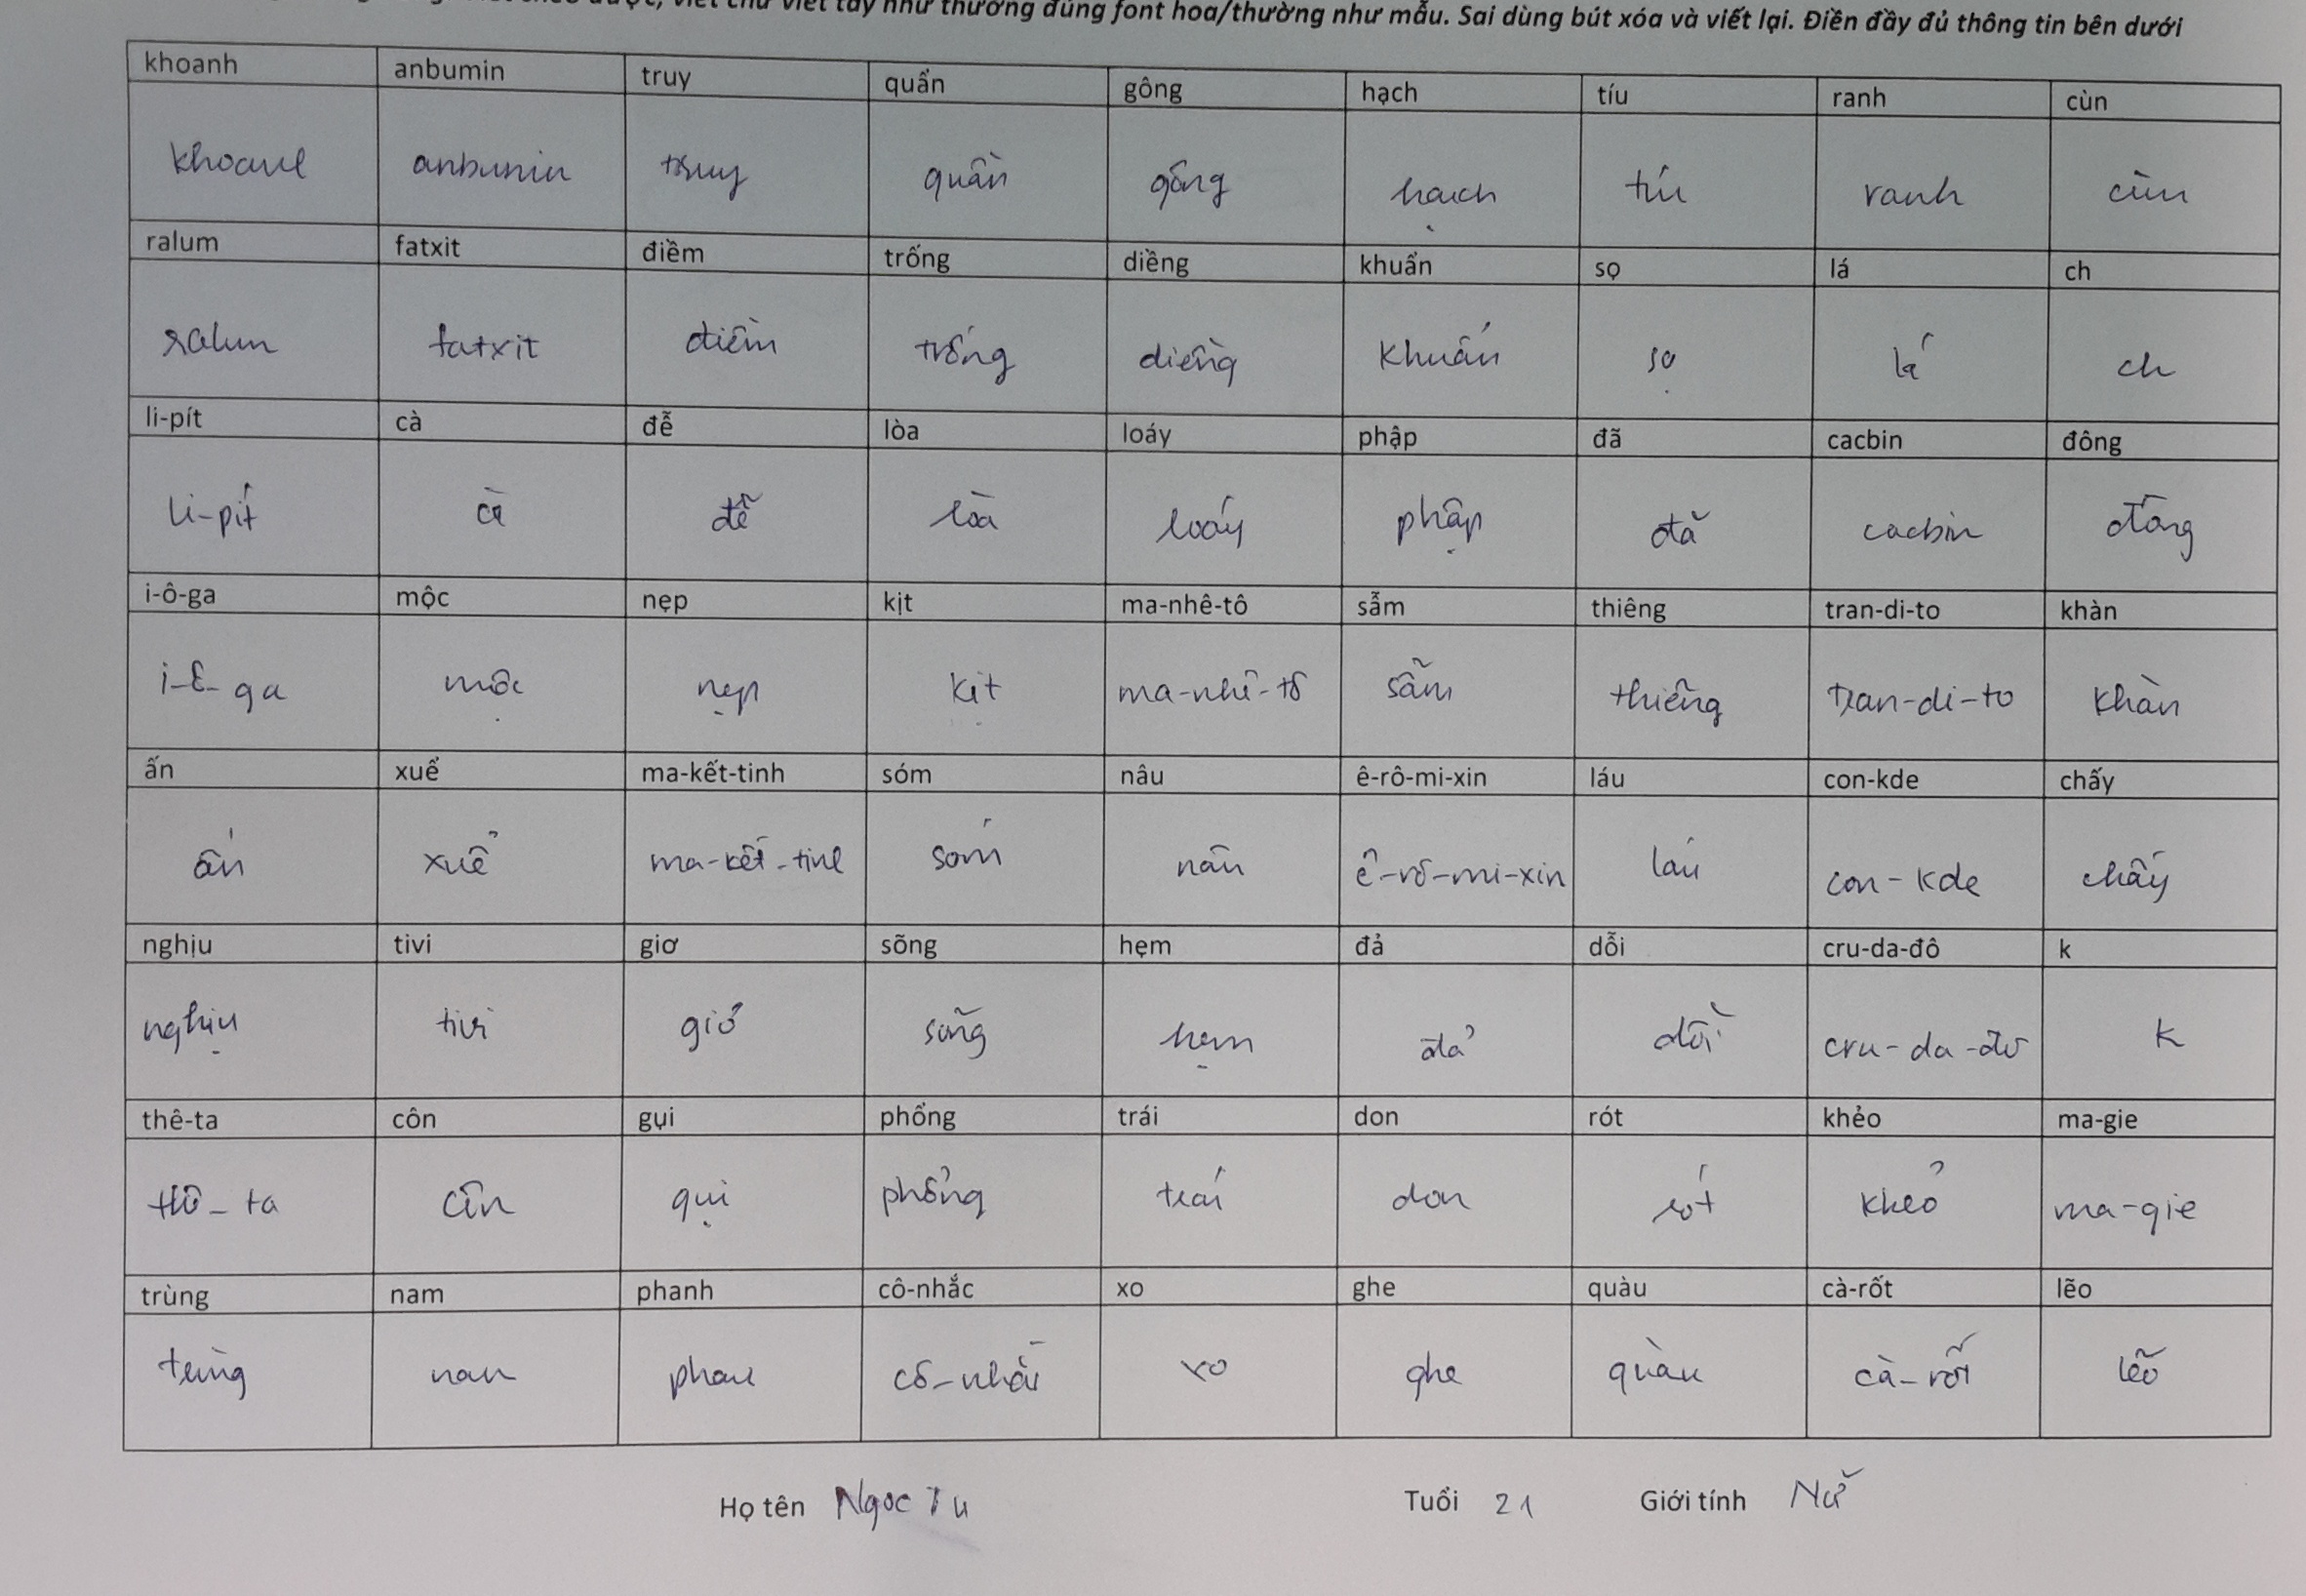 viết chữ viết tay như thường đúng font hoa/thường như mẫu. Sai dùng bút xóa và viết lại. Điền đầy đủ thông tin bên dưới
khoanh anbumin truy quẩn gông hạch tíu ranh cùn
khoanh anbumin truy quần gông hạch tíu ranh cùn
ralum fatxit điềm trống diềng khuẩn sọ lá ch
ralum fatxit điềm trống diềng khuẩn sọ lá ch
li-pít cà đễ lòa loáy phập đã cacbin đông
li-pít cà đễ lòa loáy phập đã cacbin đông
i-ô-ga mộc nẹp kịt ma-nhê-tô sẫm thiêng tran-di-to khàn
i-ô-ga mộc nẹp kịt ma-nhê-tô sẫm thiêng tran-di-to khàn
ấn xuể ma-kết-tinh sóm nâu ê-rô-mi-xin láu con-kde chấy
ấn xuể ma-kết-tinh sóm nâu ê-rô-mi-xin láu con-kde chấy
nghịu tivi giơ sõng hẹm đả dỗi cru-da-đô k
nghịu tivi giơ sõng hẹm đả dỗi cru-da-đô k
thê-ta côn gụi phổng trái don rót khẻo ma-gie
thê-ta côn gụi phổng trái don rót khẻo ma-gie
trùng nam phanh cô-nhắc xo ghe quàu cà-rốt lẽo
trùng nam phanh cô-nhắc xo ghe quàu cà-rốt lẽo
Họ tên Ngọc Tu Tuổi 21 Giới tính Nữ